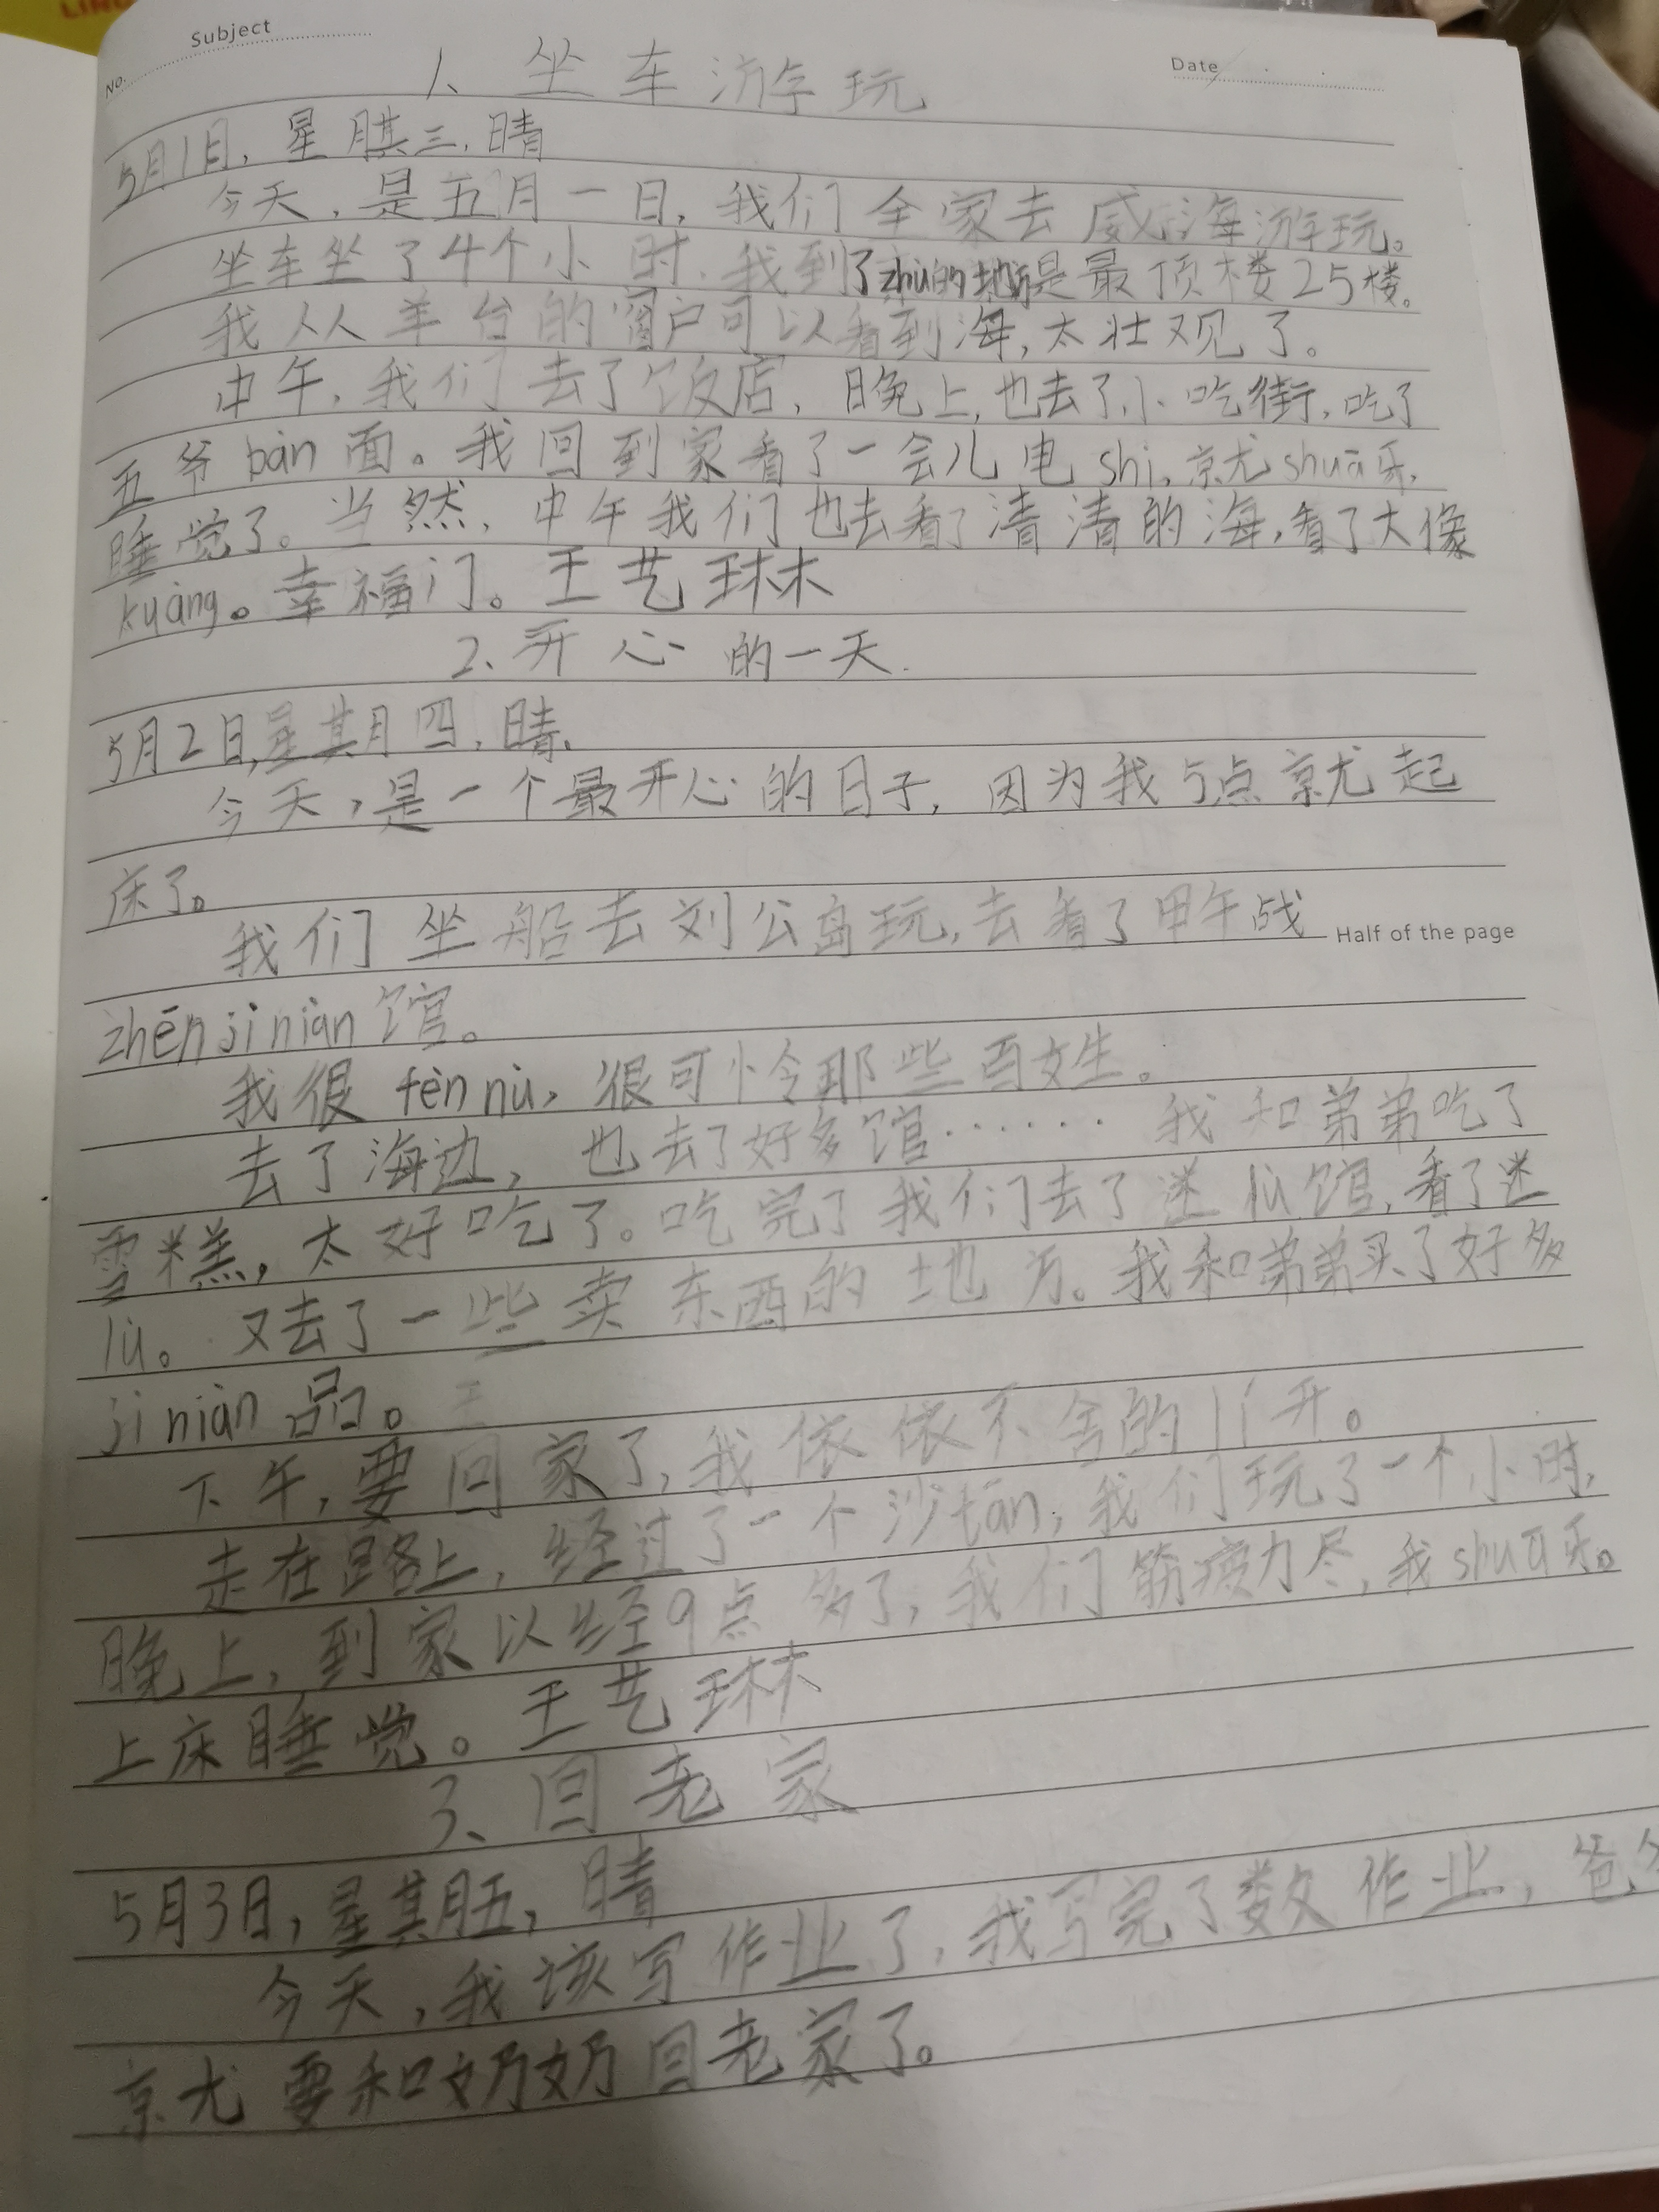 Subject
No.
Date
1、坐车游玩
5月1日,星期三,晴
今天,是五月一日,我们全家去威海游玩。
坐车坐了4个小时,我到了zhù的地方是最顶楼25楼。
我从羊台的窗户可以看到海,太壮观了。
中午,我们去了饭店,晚上,也去了小吃街,吃了
五爷bàn面。我回到家看了一会儿电shì,就shuā牙,
睡觉了。当然,中午我们也去看了清清的海,看了大像
kuàng。幸福门。王艺琳
2、开心的一天
5月2日,星期四,晴,
今天,是一个最开心的日子,因为我5点就起
床了。
我们坐船去刘公岛玩,去看了甲午战
Half of the page
zhēn jì niàn馆。
我很fèn nù,很可怜那些百姓。
去了海边,也去了好多馆……我和弟弟吃了
雪糕,太好吃了。吃完了我们去了迷lù馆,看了迷
lù。又去了一些卖东西的地方。我和弟弟买了好多
jì niàn品。
下午,要回家了,我依依不舍的lí开。
走在路上,经过了一个沙tān,我们玩了一个小时,
晚上,到家以经9点多了,我们筋疲力尽,我shuā牙。
上床睡觉。王艺琳
3、回老家
5月3日,星期五,晴
今天,我该写作业了,我写完了数作业,爸
就要和奶奶回老家了。